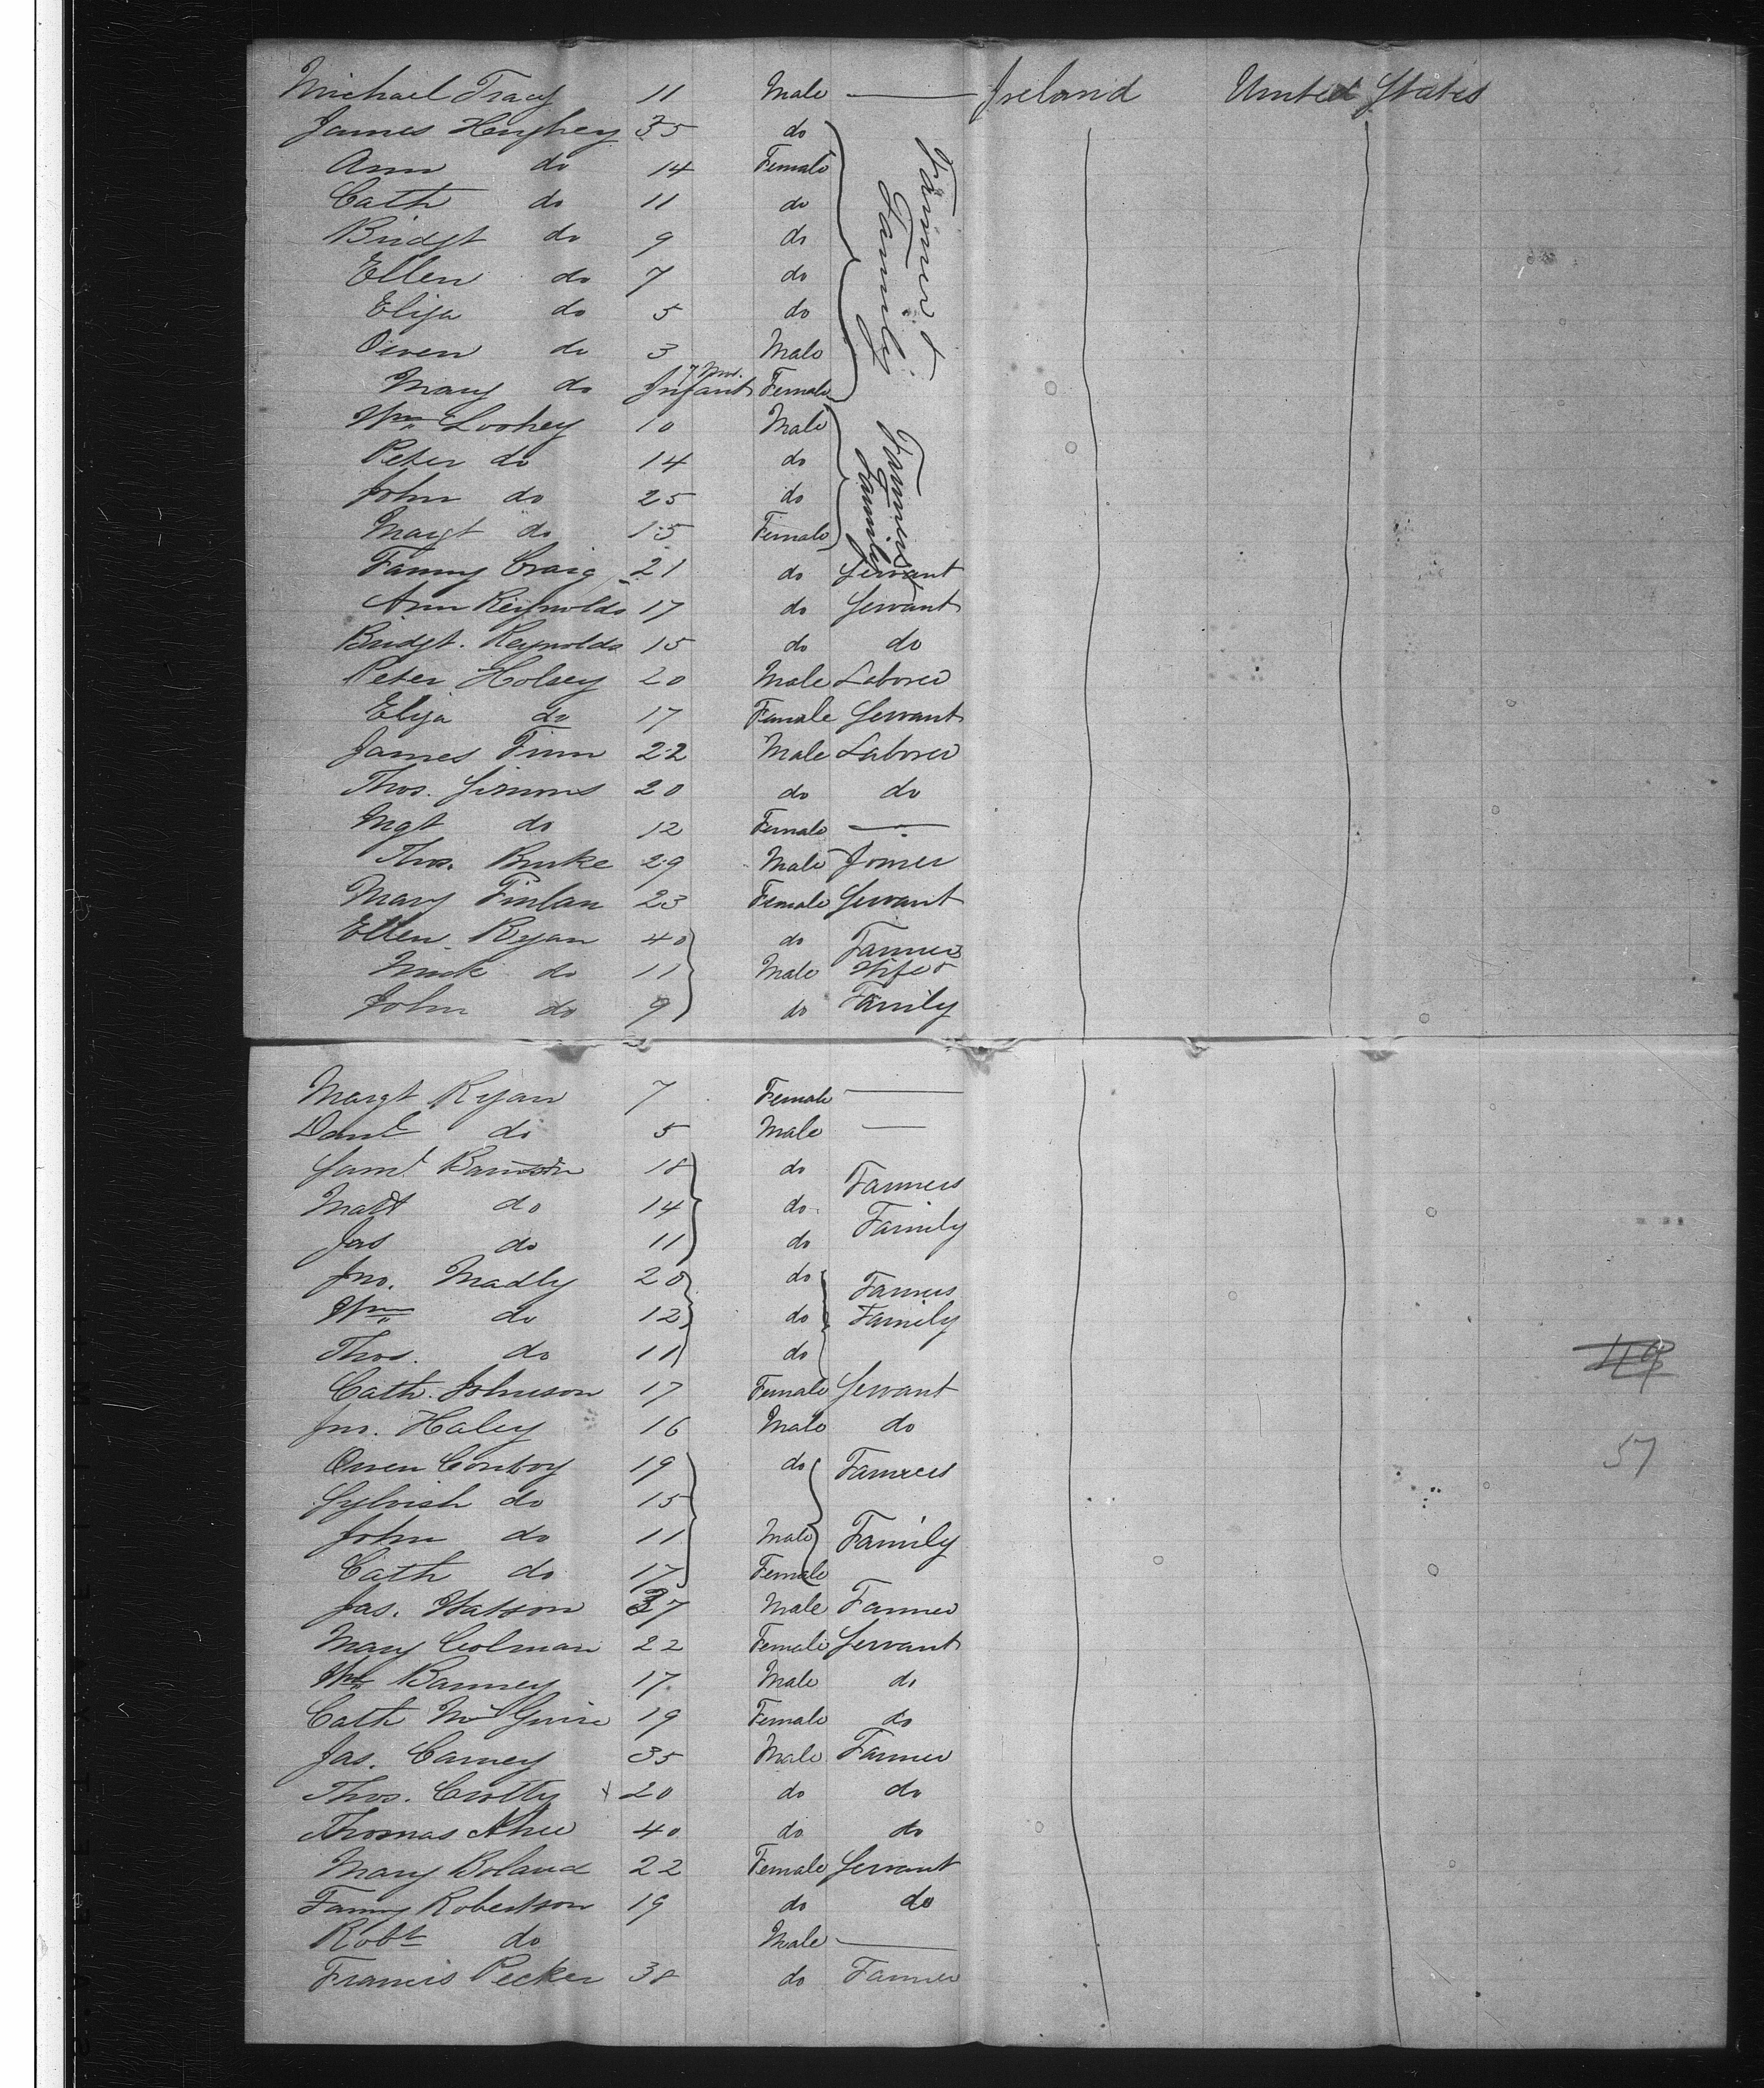 Michael Tracy 11 Male — Ireland United States
James Heughey 35 do Farmer &
Ann do 14 Female Family
Cath do 11 do
Bridgt do 9 do
Ellen do 7 do
Eliza do 5 do
Owen do 3 Male
Mary do Infant 7 Mos. Female
Wm Loohey 10 Male Farmers
Peter do 14 do Family
John do 25 do
Margt do 15 Female
Fanny Craig 21 do Servant
Ann Reynolds 17 do Servant
Bridgt. Reynolds 15 do do
Peter Holsey 20 Male Laborer
Eliza do 17 Female Servant
James Finn 22 Male Laborer
Thos. Simons 20 do do
Mgt do 12 Female —
Thos. Burke 29 Male Joiner
Mary Finlan 23 Female Servant
Ellen Ryan 40 do Farmers
Mick do 11 Male Wife &
John do 9 do Family
Margt Ryan 7 Female —
Danl do 5 Male —
Saml. 18 do Farmers
Matt do 14 do Family
Jas do 11 do
Jno. Madly 20 do Farmers
Wm do 12 do Family
Thos. do 11 do
Cath. Johnson 17 Female Servant
Jno. Haley 16 Male do
Owen Conboy 19 do Farmers
do 15
John do 11 Male Family
Cath do 17 Female
Jas. Watson 37 Male Farmer
Mary Colman 22 Female Servant
Wm Banney 17 Male do
Cath McGuire 19 Female do
Jas. Carney 35 Male Farmer
Thos. Crotty 20 do do
Thomas 40 do do
Mary Boland 22 Female Servant
Fanny Robertson 19 do do
Robt do Male —
Francis Pecker 38 do Farmer
49
57